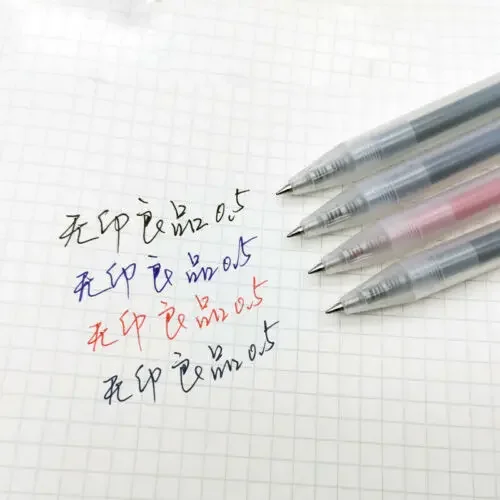 无印良品0.5
无印良品0.5
无印良品0.5
无印良品0.5